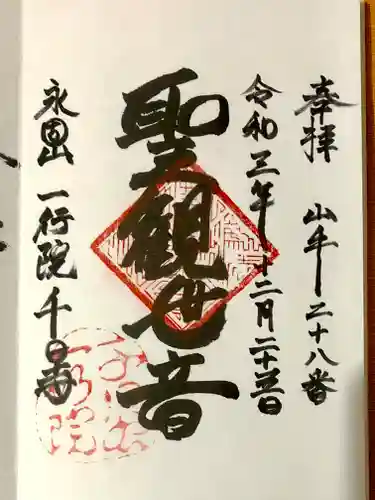 奉拝 山手二十八番
令和三年十二月二十五日
聖観世音
永固山 一行院 千日寺